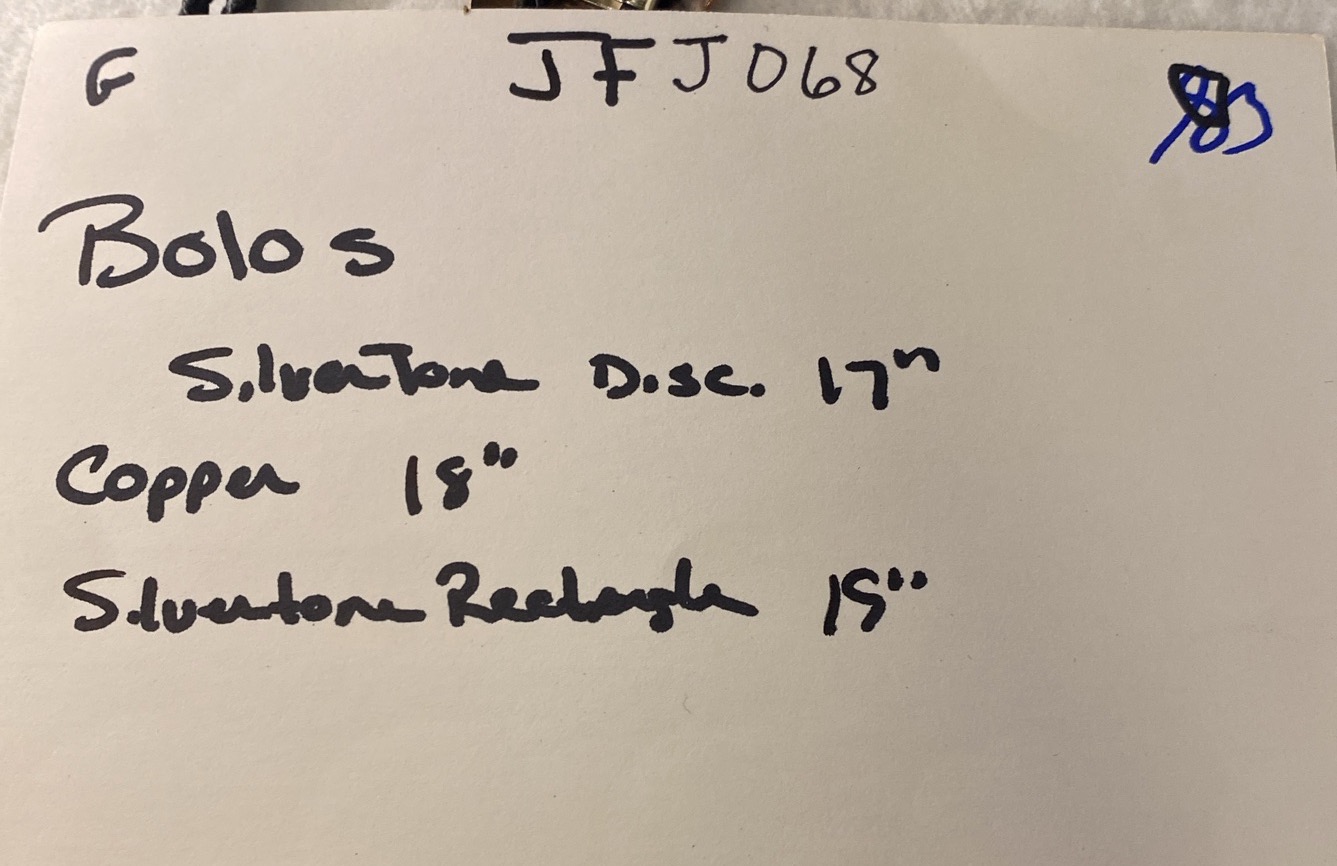 G JFJ068
Bolos
SilverTone Disc. 17"
Copper 18"
Silvertone Rectangle 19"